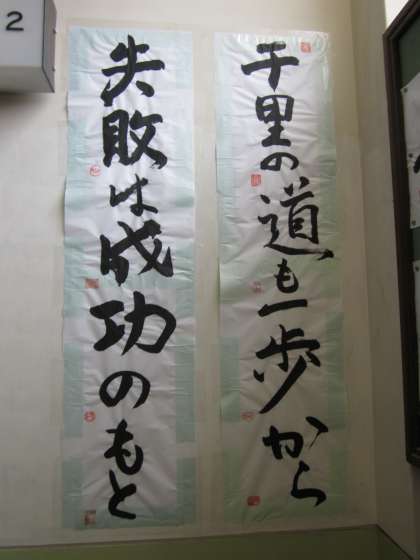 千里の道も一歩から
失敗は成功のもと
2